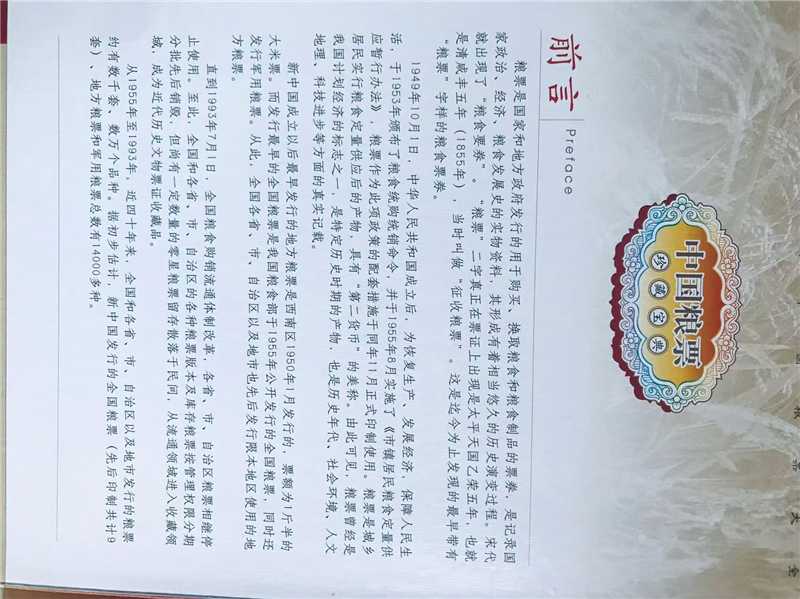 中国粮票
珍藏宝典
前言 Preface
粮票是国家和地方政府发行的用于购买、换取粮食和粮食制品的票券，是记录国
家政治、经济、粮食发展史的实物资料，其形成有着相当悠久的历史演变过程。宋代
就出现了“粮食要券”。“粮票”二字真正在票证上出现是太平天国乙荣五年，也就
是清咸丰五年（1855年），当时叫做“征收粮票”。这是迄今为止发现的最早带有
“粮票”字样的粮食票券。
1949年10月1日，中华人民共和国成立后，为恢复生产、发展经济，保障人民生
活，于1953年颁布了粮食统购统销命令，并于1955年8月实施了《市镇居民粮食定量供
应暂行办法》，粮票作为此项政策的配套措施于同年11月正式印制使用。粮票是城乡
居民实行粮食定量供应后的产物，具有“第二货币”的美称。由此可见，粮票曾经是
我国计划经济的标志之一，是特定历史时期的产物，也是历史年代、社会环境、人文
地理、科技进步等方面的真实记载。
新中国成立以后最早发行的地方粮票是西南区1950年1月发行的，票额为1斤半的
大米票。而发行最早的全国粮票是我国粮食部于1955年公开发行的全国粮票，同时还
发行军用粮票。从此，全国各省、市、自治区以及地市也先后发行限本地区使用的地
方粮票。
直到1993年7月1日，全国粮食购销流通体制改革，各省、市、自治区粮票相继停
止使用。至此，全国和各省、市、自治区的各种粮票版本及库存粮票按管理权限分期
分批先后销毁，但尚有一定数量的零星粮票留存散落于民间，从流通领域进入收藏领
域，成为近代历史文物票证收藏品。
从1955年至1993年，近四十年来，全国和各省、市、自治区以及地市发行的粮票
约有数千套、数万个品种。据初步估计，新中国发行的全国粮票（先后印制共计9
套）、地方粮票和军用粮票总数有14000多种。